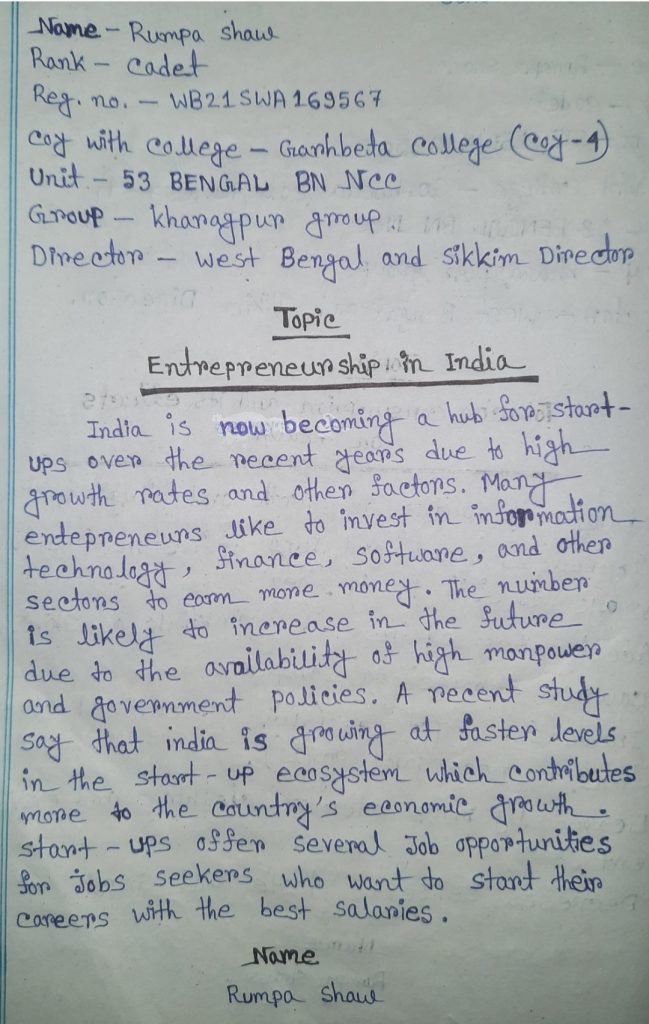 Name - Rumpa Shaw
Rank - Cadet
Reg. no. - WB21SWA169567
coy with college - Garhbeta college (coy-4)
Unit - 53 BENGAL BN NCC
Group - kharagpur group.
Director - West Bengal and Sikkim Director
Topic
Entrepreneurship in India
India is now becoming a hub for start-
ups over the recent years due to high
growth rates and other factors. Many
entepreneurs like to invest in information
technology, finance, software, and other
sectors to earn more money. The number
is likely to increase in the future
due to the availability of high manpower
and government policies. A recent study
say that india is growing at faster levels
in the start-up ecosystem which contributes
more to the country's economic growth.
start-ups offer several Job opportunities
for Jobs seekers who want to start their
careers with the best salaries.
Name
Rumpa Shaw